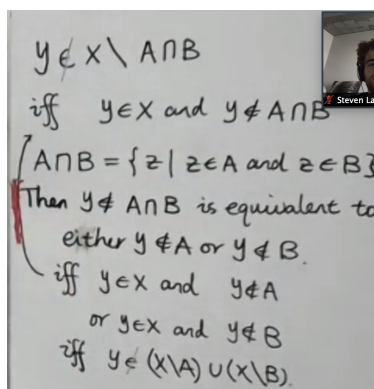 y ∈ X \ A∩B
iff y∈X and y∉A∩B
Steven La
A∩B = {z | z∈A and z∈B}
Then y∉ A∩B is equivalent to
either y∉A or y∉B.
iff y∈X and y∉A
or y∈X and y∉B
iff y∈ (X\A) ∪ (X\B).